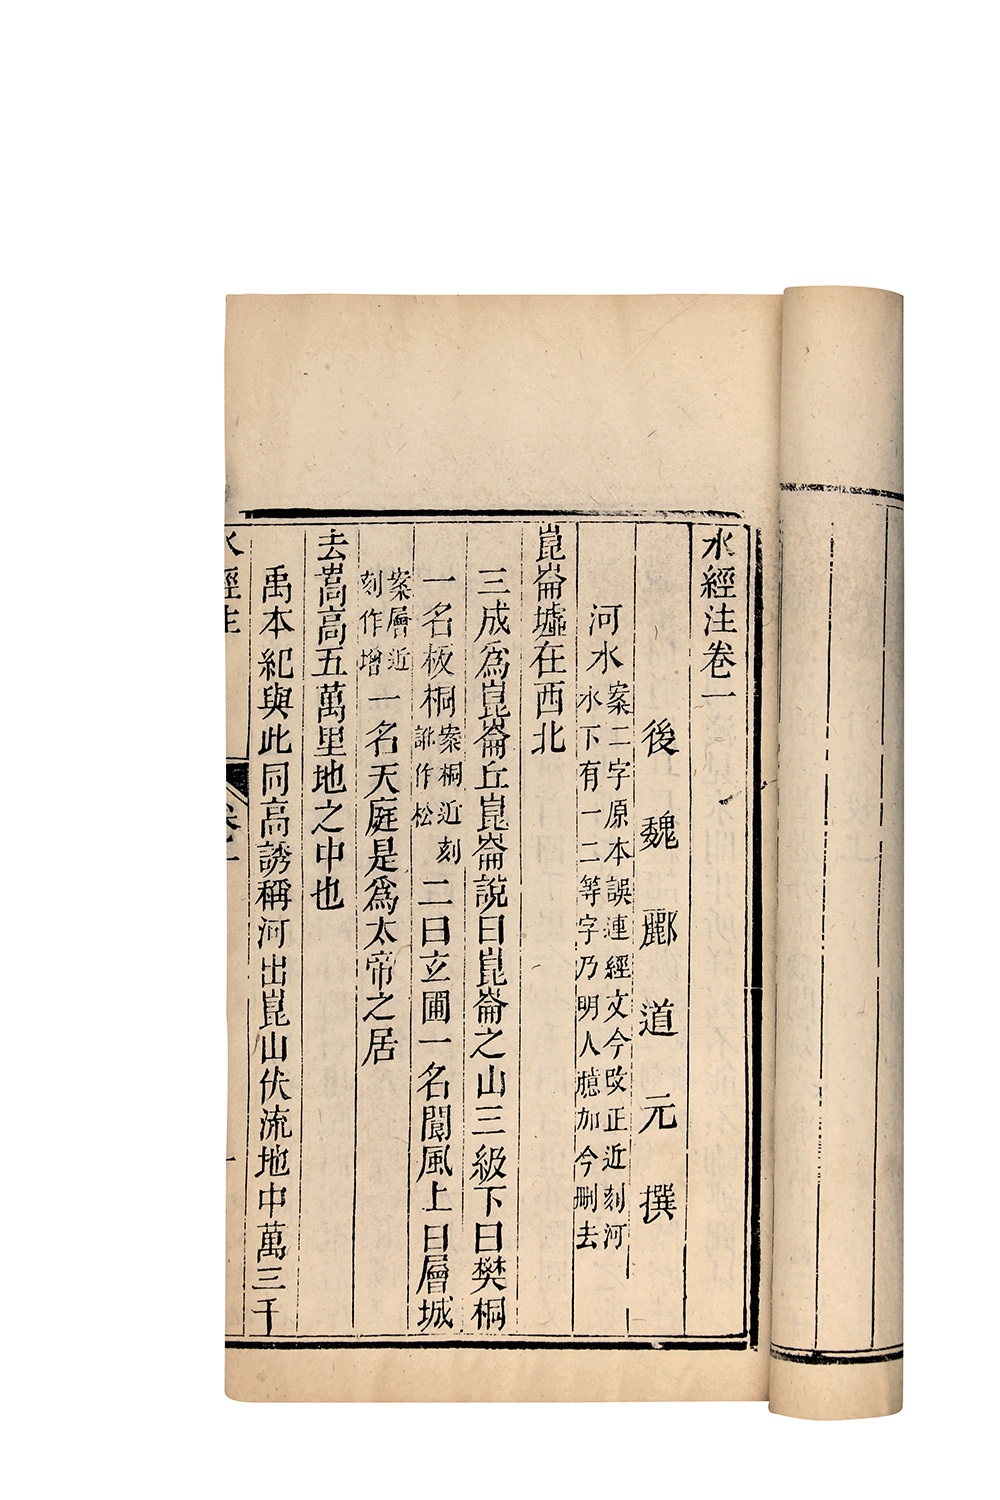 水經注卷一
後魏酈道元撰
河水案二字原本誤連經文今改正近刻河
水下有一二等字乃明人臆加今刪去
崑崙墟在西北
三成爲崑崙丘崑崙說曰崑崙之山三級下曰樊桐
一名板桐案桐近刻訛作松二曰玄圃一名閬風上曰層城
案層近刻作增一名天庭是爲太帝之居
去嵩高五萬里地之中也
禹本紀與此同高誘稱河出崑山伏流地中萬三千
水經注
卷一
一